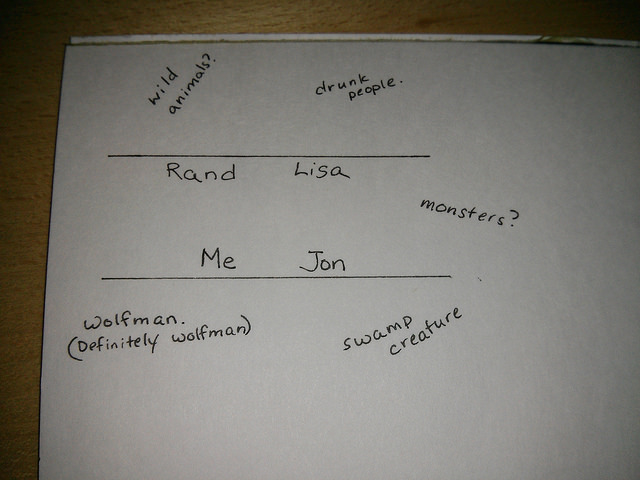 wild
animals?
drunk
people.
Rand Lisa
monsters?
Me Jon
wolfman.
(Definitely wolfman)
swamp
creature